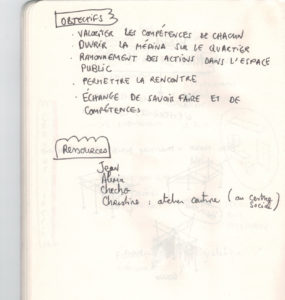 OBJECTIFS 3
. VALORISER LES COMPÉTENCES DE CHACUN
. OUVRIR LA MÉDINA SUR LE QUARTIER
. RAYONNEMENT DES ACTIONS DANS L'ESPACE
PUBLIC
. PERMETTRE LA RENCONTRE
. ÉCHANGE DE SAVOIR FAIRE ET DE
COMPÉTENCES
Ressources
Jean
Christine : atelier couture (au centre
social)